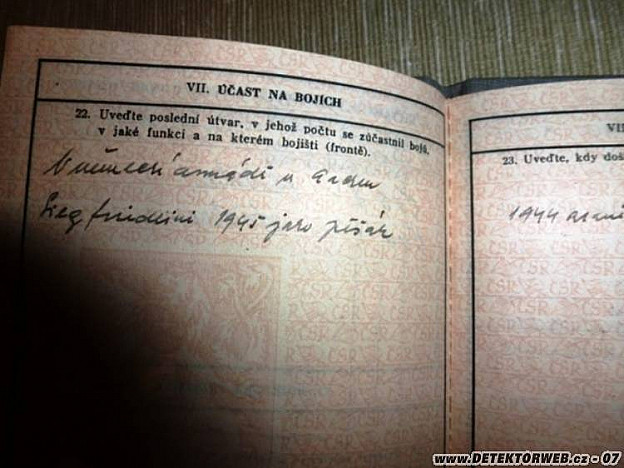 VII. ÚČAST NA BOJÍCH
22. Uveďte poslední útvar, v jehož počtu se zúčastnil bojů,
v jaké funkci a na kterém bojišti (frontě).
V německí armádě u Arden
1945 jako pěšák
VII
23. Uveďte, kdy doš
1944
ČSR
www.DETEKTORWEB.cz - 07